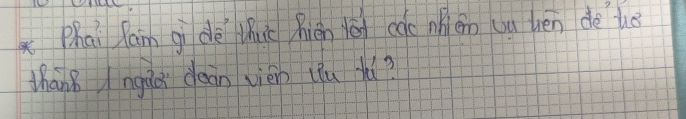 * Phải làm gì để thực hiện tốt các nhiệm vụ trên để trở
thành 1 người đoàn viên ưu tú?